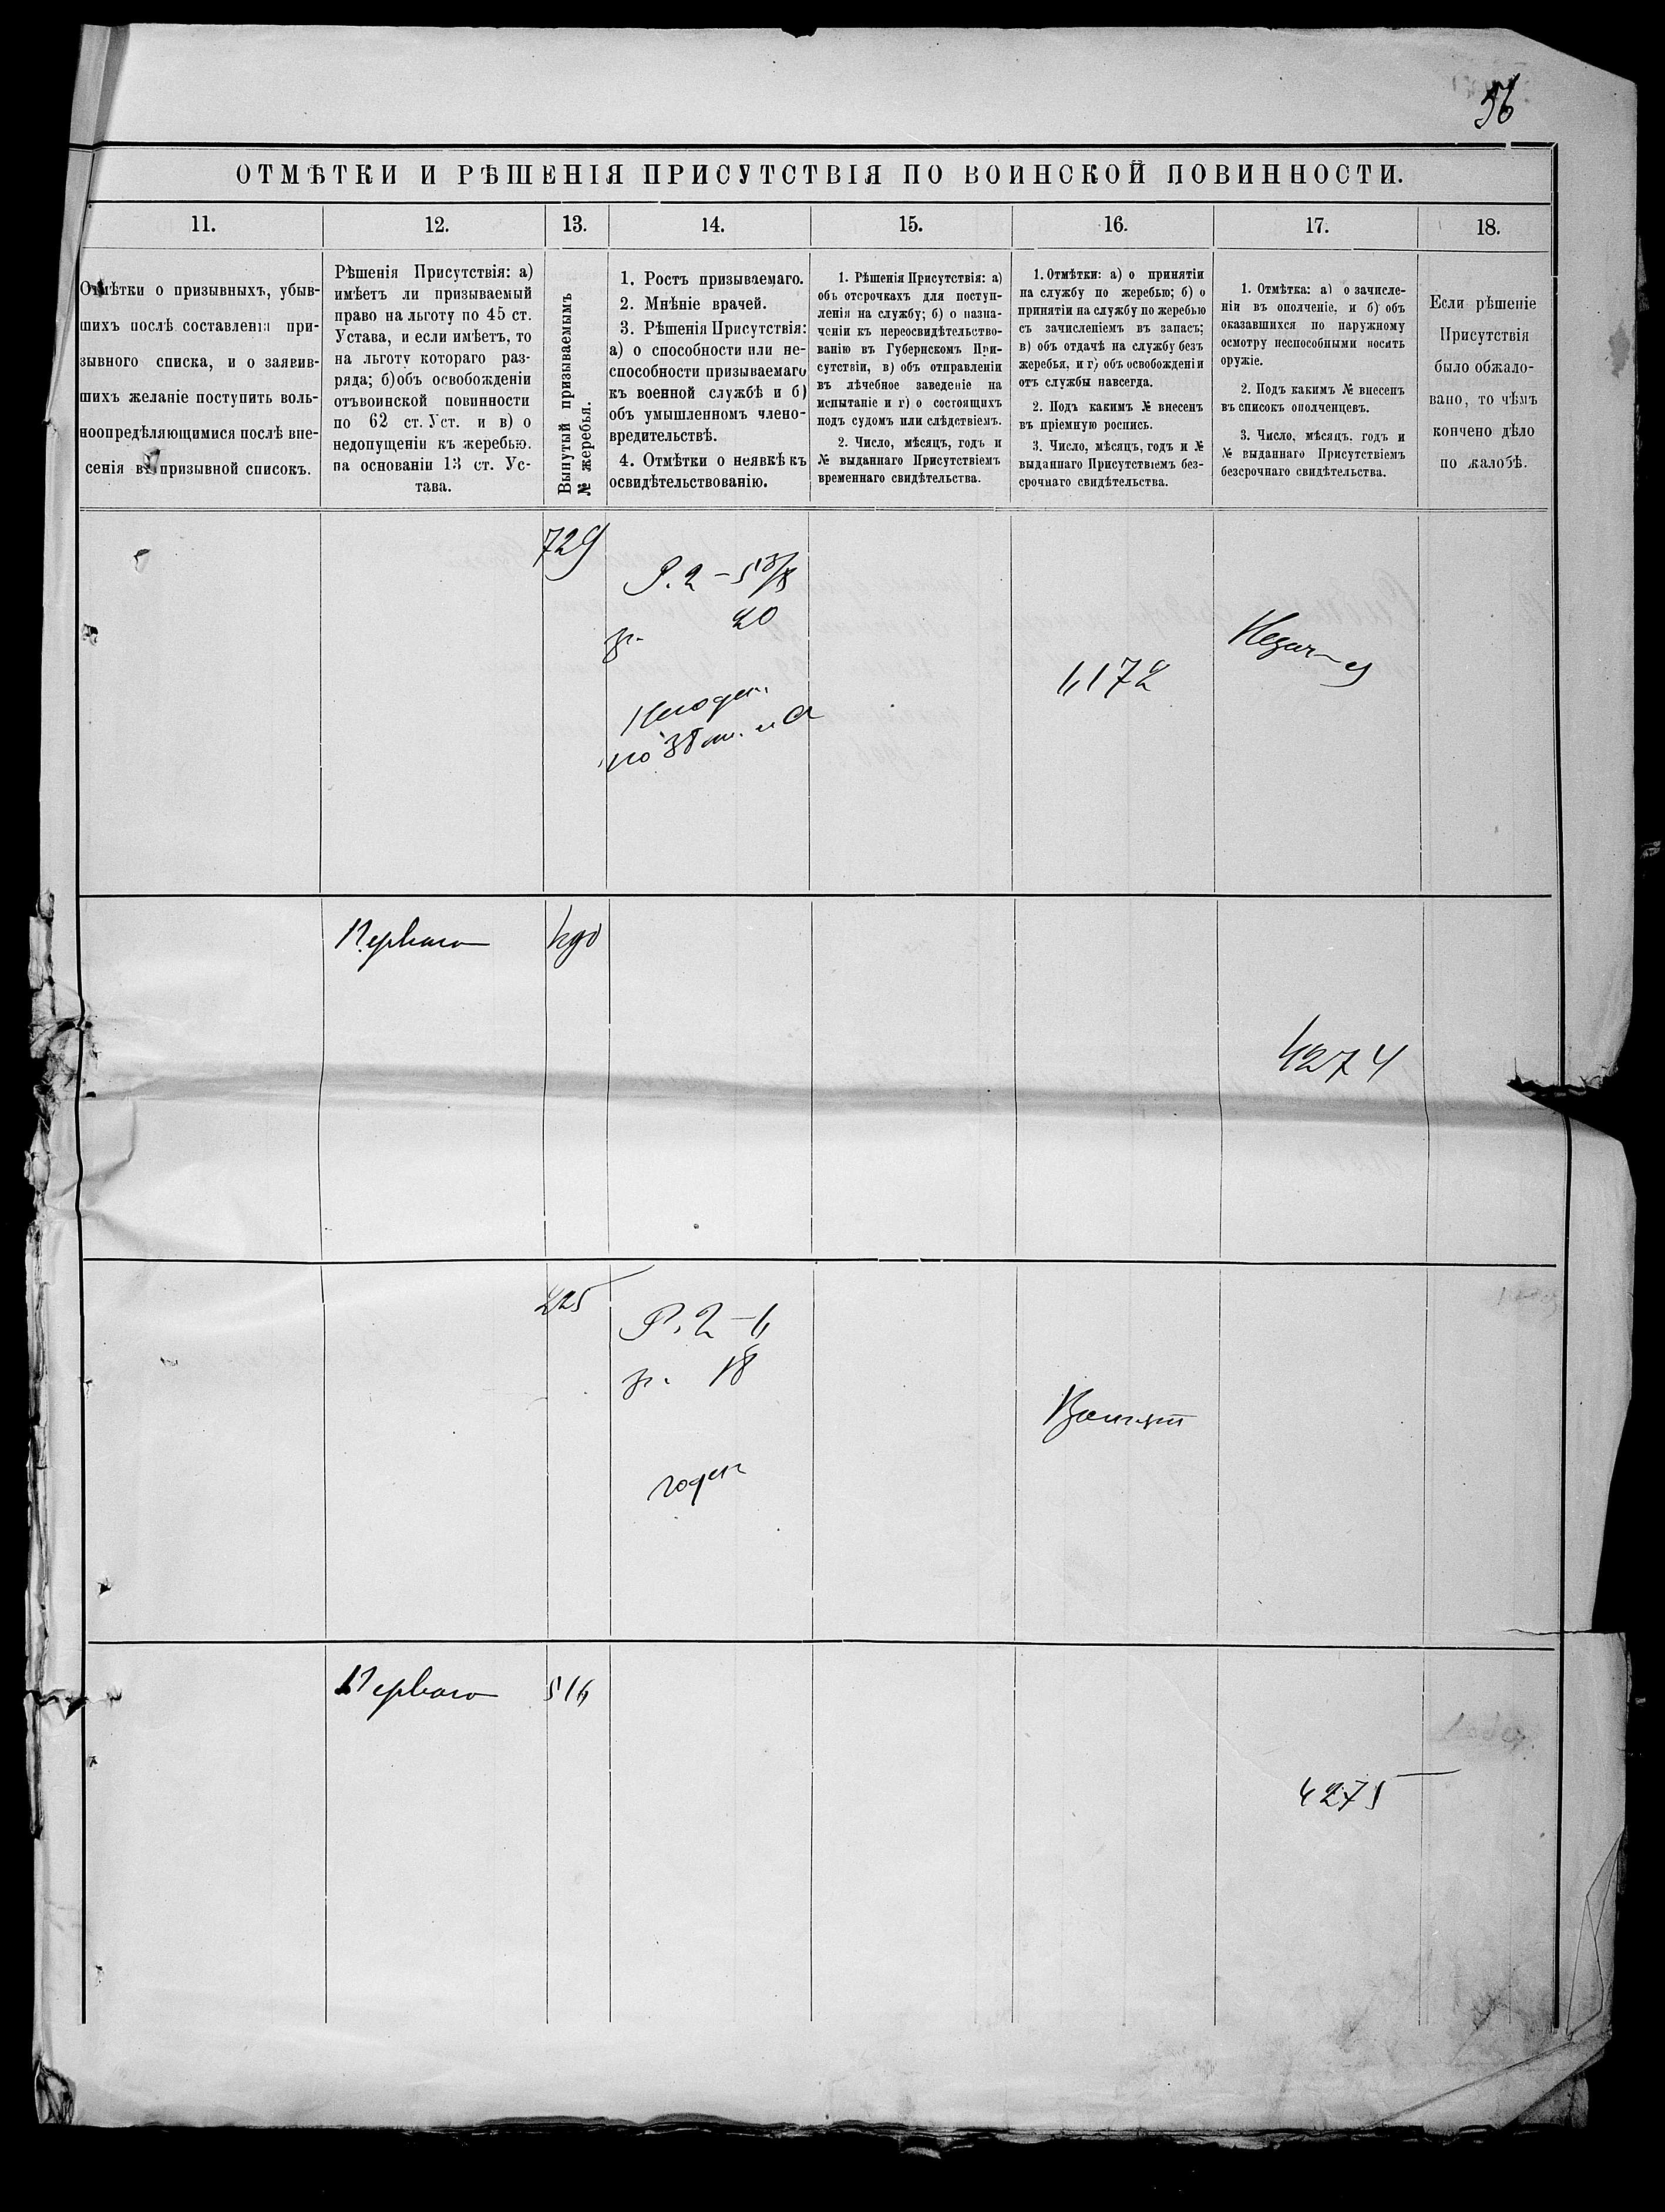 56
ОТМѢТКИ И РѢШЕНІЯ ПРИСУТСТВІЯ ПО ВОИНСКОЙ ПОВИННОСТИ.
11.
12.
13.
14.
15.
16.
17.
18.
Отмѣтки о призывныхъ, убыв-
шихъ послѣ составленія при-
зывного списка, и о заявив-
шихъ желаніе поступить воль-
ноопредѣляющимися послѣ вне-
сенія въ призывной списокъ.
Рѣшенія Присутствія: а)
имѣетъ ли призываемый
право на льготу по 45 ст.
Устава, и если имѣетъ, то
на льготу котораго раз-
ряда; б) объ освобожденіи
отъ воинской повинности
по 62 ст. Уст. и в) о
недопущеніи къ жеребью.
на основаніи 13 ст. Ус-
тава.
Вынутый призываемымъ
№ жеребья.
1. Ростъ призываемаго.
2. Мнѣніе врачей.
3. Рѣшенія Присутствія:
а) о способности или не-
способности призываемаго
къ военной службѣ и б)
объ умышленномъ члено-
вредительствѣ.
4. Отмѣтки о неявкѣ къ
освидѣтельствованію.
1. Рѣшенія Присутствія: а)
объ отсрочкахъ для поступ-
ленія на службу; б) о назна-
ченіи къ переосвидѣтельство-
ванію въ Губернскомъ При-
сутствіи, в) объ отправленіи
въ лѣчебное заведеніе на
испытаніе и г) о состоящихъ
подъ судомъ или слѣдствіемъ.
2. Число, мѣсяцъ, годъ и
№ выданнаго Присутствіемъ
временнаго свидѣтельства.
1. Отмѣтки: а) о принятіи
на службу по жеребью; б) о
принятіи на службу по жеребью
съ зачисленіемъ въ запасъ;
в) объ отдачѣ на службу безъ
жеребья, и г) объ освобожденіи
отъ службы навсегда.
2. Подъ какимъ № внесенъ
въ пріемную роспись.
3. Число, мѣсяцъ, годъ и №
выданнаго Присутствіемъ без-
срочнаго свидѣтельства.
1. Отмѣтка: а) о зачисле-
ніи въ ополченіе, и б) объ
оказавшихся по наружному
осмотру неспособными носить
оружіе.
2. Подъ какимъ № внесенъ
въ списокъ ополченцевъ.
3. Число, мѣсяцъ, годъ и
№ выданнаго Присутствіемъ
безсрочнаго свидѣтельства.
Если рѣшеніе
Присутствія
было обжало-
вано, то чѣмъ
кончено дѣло
по жалобѣ.
729
Р. 2 – 5 3/8
гр. 20
Негоденъ
по
4172
Перваго
4274
225
Р. 2 – 4
гр. 18
годенъ
Перваго
514
4275